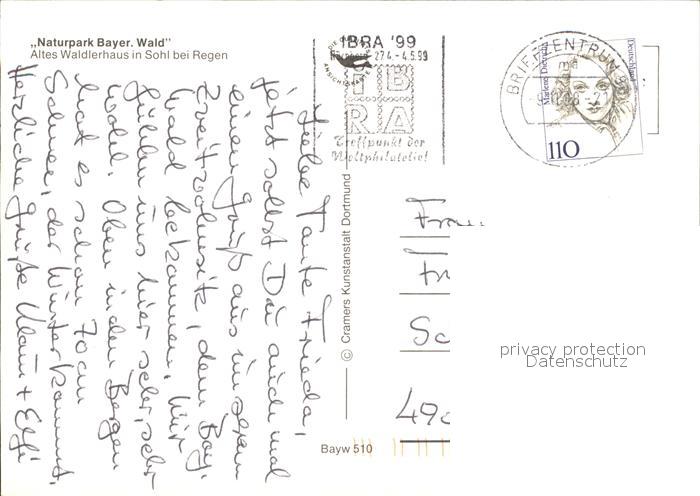 „Naturpark Bayer. Wald"
Altes Waldlerhaus in Sohl bei Regen
IBRA '99
Nürnberg 27.4.-4.5.99
IB
RA
Treffpunkt der
Weltphilatelie!
BRIEFZENTRUM
Deutschland
Marlene Dietrich
110
Liebe Tante Frieda,
jetzt sollst Du auch mal
einen Gruß aus unserem
Zweitwohnsitz, dem Bay.
Wald bekommen. Wir
fühlen uns hier sehr, sehr
wohl. Oben in den Bergen
hat es schon 70 cm
Schnee, der Winter kommt.
Herzliche Grüße Klaus + Elfi
© Cramers Kunstanstalt Dortmund
Frau
Fr
Sc
490
Bayw 510
privacy protection
Datenschutz